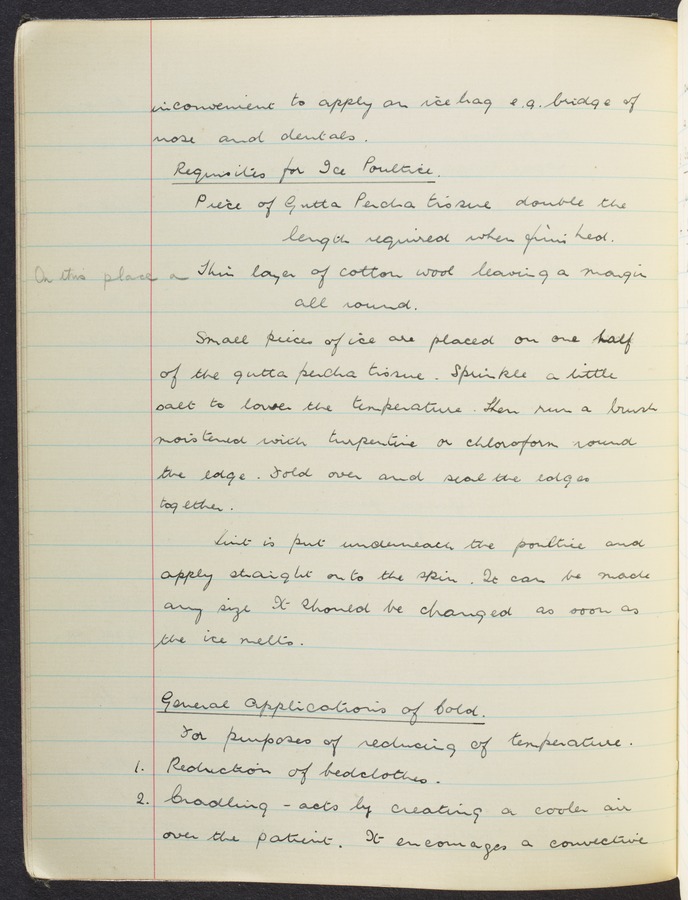 inconvenient to apply an ice bag e.g. bridge of
nose and dentals.
Requisites for Ice Poultice.
Piece of Gutta Percha tissue double the
length required when finished.
On this place a Thin layer of cotton wool leaving a margin
all round.
Small pieces of ice are placed on one half
of the gutta percha tissue. Sprinkle a little
salt to lower the temperature. Then run a brush
moistened with turpentine or chloroform round
the edge. Fold over and seal the edges
together.
Lint is put underneath the poultice and
apply straight onto the skin. It can be made
any size It should be changed as soon as
the ice melts.
General Applications of Cold.
For purposes of reducing of temperature.
1. Reduction of bedclothes.
2. Cradling - acts by creating a cooler air
over the patient. It encourages a convective